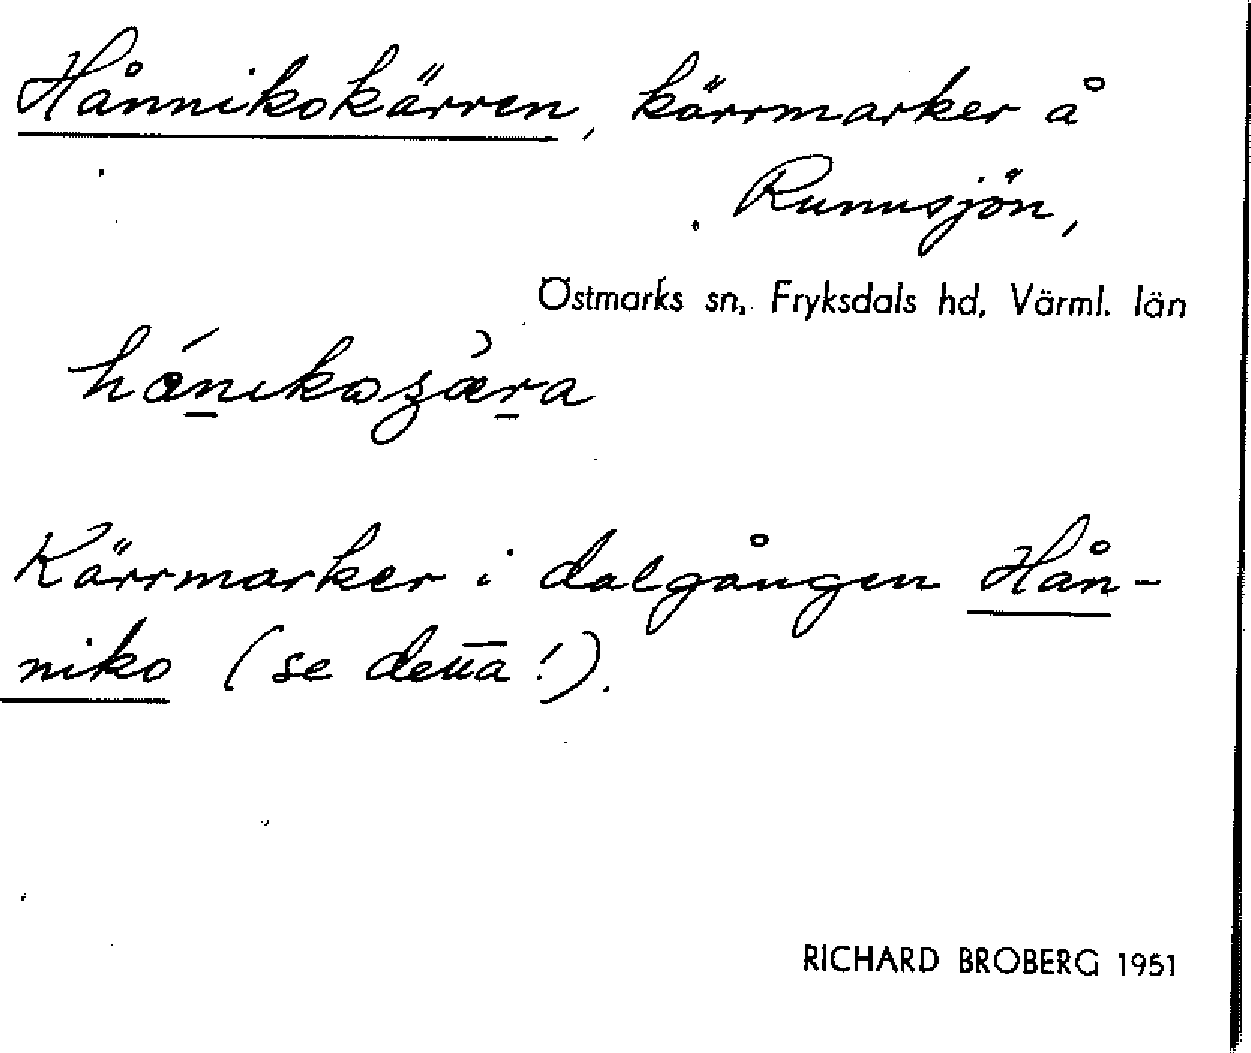 Hånnikokärren, kärrmarker å
Runnsjön,
Östmarks sn, Fryksdals hd, Värml. län
Kärrmarker i dalgången Hån-
niko (se detta!).
RICHARD BROBERG 1951